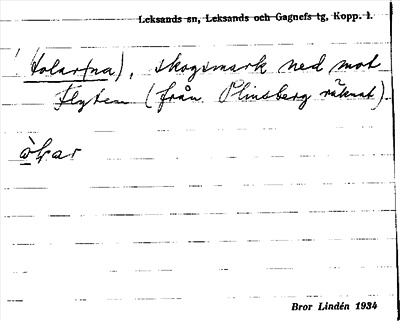 Leksands sn, Leksands och Gagnefs tg, Kopp. l.
(tolar(na), skogsmark ned mot
Flyten (från Plinsberg räknat).
òkar
Bror Lindén 1934